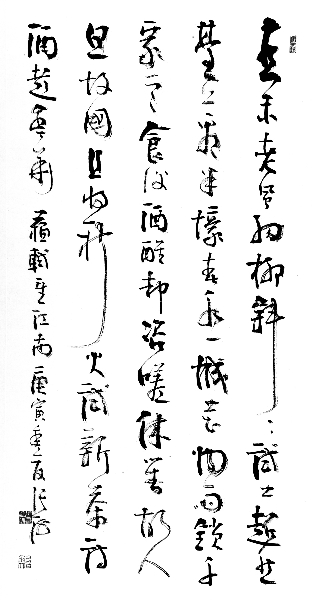 春未老風細柳斜〻試上超然
臺上看半壕春水一城花烟雨鎖千
家寒食後酒醒却咨嗟休對故人
思故國且將新火試新茶詩
酒趁年華 蘇軾望江南 庚寅